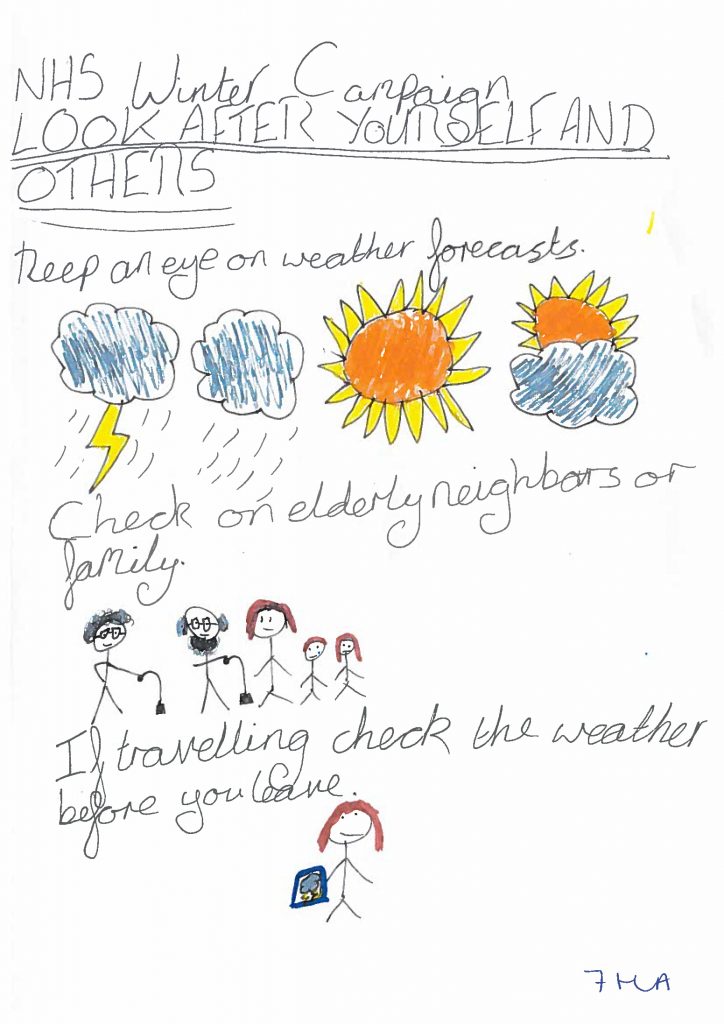 NHS Winter Campaign
LOOK AFTER YOURSELF AND
OTHERS
Keep an eye on weather forecasts.
Check on elderly neighbors or
family.
If travelling check the weather
before you leave.
7 MA